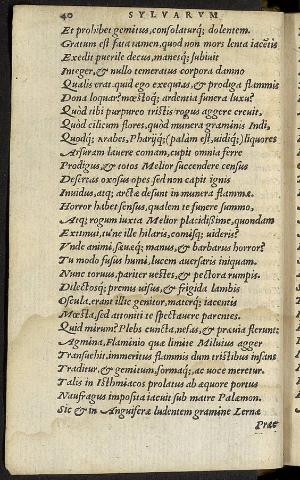 40 SYLVARVM
Et prohibet gemitus, consolaturq; dolentem.
Gratum est fata tamen, quod non mors lenta iacẽtis
Exedit puerile decus, manesq; subiuit
Integer, & nullo temeratus corpora damno
Qualis erat. quid ego exequias, & prodiga flammis
Dona loquar? mœstoq; ardentia funera luxu?
Quòd tibi purpureo tristis rogus aggere creuit.
Quòd cilicum flores, quòd munera graminis Indi,
Quodq; Arabes, Pharijq; (palàm est, uidiq;) liquores
Arsuram lauere comam, cupit omnia ferre
Prodigus, & totos Melior succendere census
Desertas exosus opes sed non capit ignis
Inuidus, atq; arctæ desunt in munera flammæ.
Horror habet sensus, qualem te funere summo,
Atq; rogum iuxta Melior placidissime, quondam
Extimui, tu'ne ille hilaris, comisq; uideris?
Vnde animi, sæuæq; manus, & barbarus horror?
Tu modo fusus humi, lucem auersaris iniquam.
Nunc toruus, pariter uestes, & pectora rumpis.
Dilectosq; premis uisus, & frigida lambis
Oscula. erant illic genitor, materq; iacentis
Mœsta, sed attoniti te spectauere parentes.
Quid mirum? Plebs cuncta, nefas, & præuia flerunt
Agmina, Flaminio quæ limite Miluius agger
Transuehit, immeritus flammis dum tristibus insans
Traditur, & gemitum, formaq;, ac uoce meretur.
Talis in Isthmiacos prolatus ab æquore portus
Naufragus imposita iacuit sub matre Palæmon.
Sic & in Anguiferæ ludentem gramine Lernæ
Præ